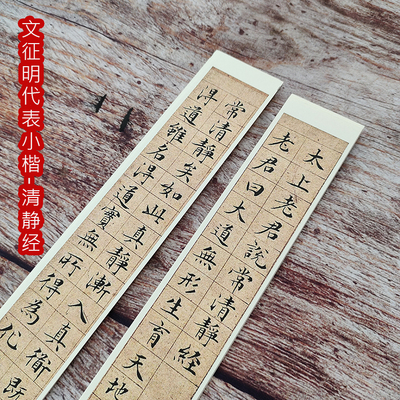 文征明代表小楷-清静经
太上老君說常清靜経
老君曰大道無形生育天地
常清靜矣如此真靜漸入真衜既
得道雖名得道實無所得為化